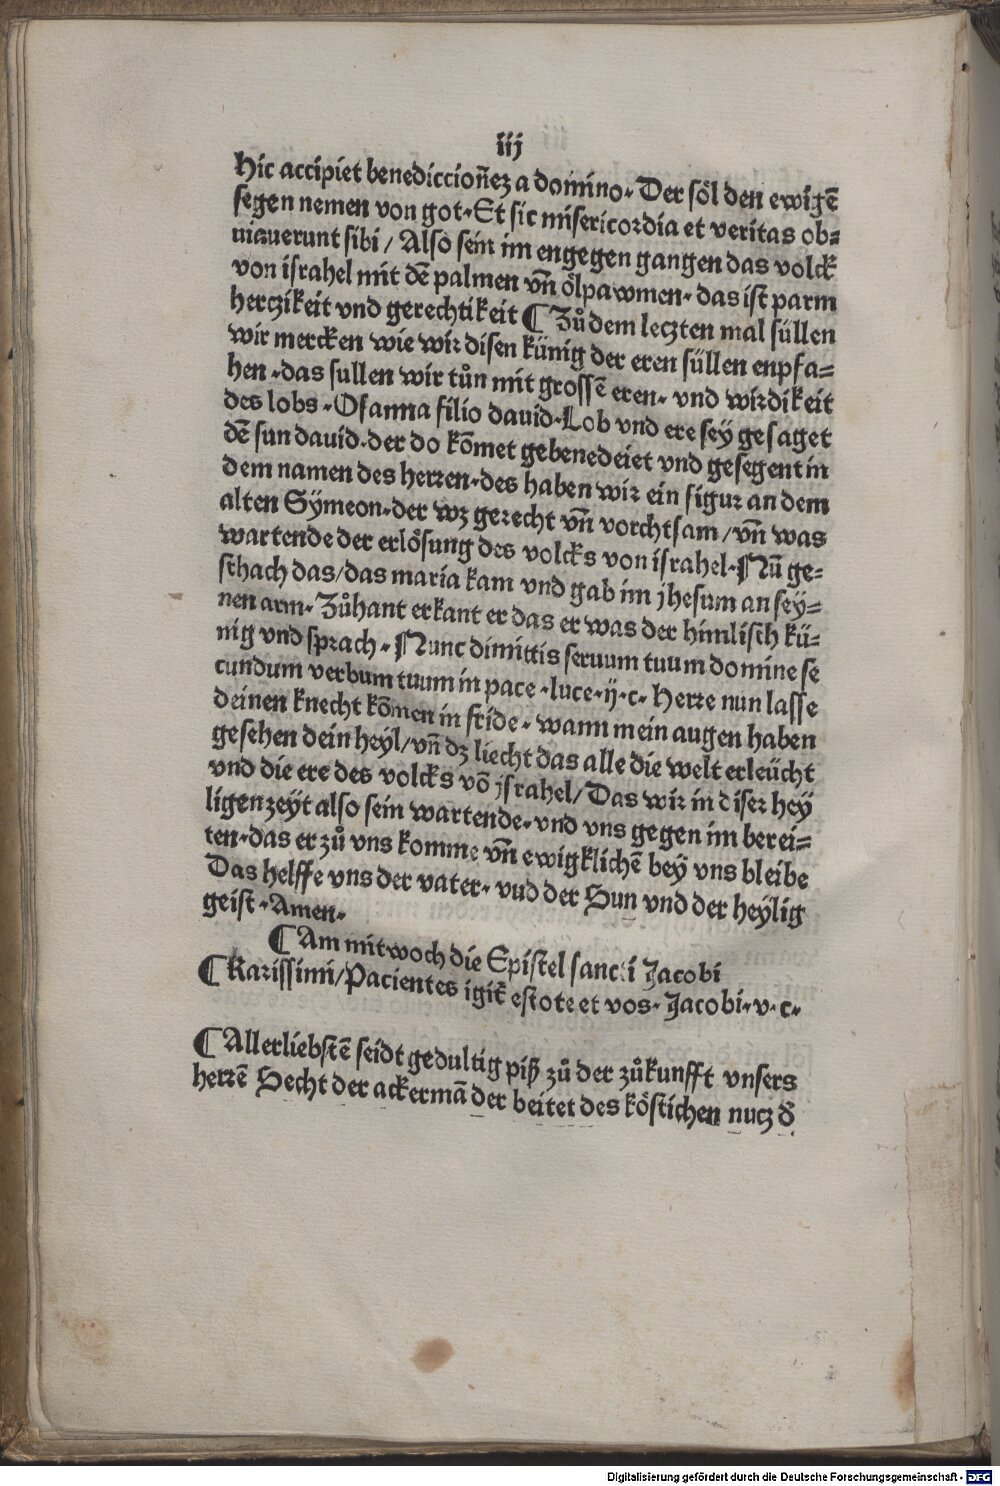 iij
Hic accipiet benediccion̄ez a domino. Der sôl den ewigē
segen nemen von got. Et sic misericordia et veritas ob⸗
uiauerunt sibi / Also sein im engegen gangen das volck
von israhel mit dē palmen vn̄ ôlpawmen. das ist parm
herczikeit vnd gerechtikeit ¶ Zů dem leczten mal süllen
wir mercken wie wir disen künig der eren süllen enpfa⸗
hen . das sullen wir tůn mit grossē eren. vnd wirdikeit
des lobs . Osanna filio dauid. Lob vnd ere sey gesaget
dē sun dauid. der do kōmet gebenedeiet vnd gesegent in
dem namen des herren. des haben wir ein figur an dem
alten Sÿmeon. der wz gerecht vn̄ vorchtsam / vn̄ was
wartende der erlôsung des volcks von israhel. Nū ge⸗
schach das / das maria kam vnd gab im jhesum an seÿ⸗
nen arm. Zůhant erkant er das er was der himlisch kü⸗
nig vnd sprach . Nunc dimittis seruum tuum domine se
cundum verbum tuum in pace . luce . ij . c. Herre nun lasse
deinen knecht kōmen in fride . wann mein augen haben
gesehen dein heyl / vn̄ dz liecht das alle die welt erleücht
vnd die ere des volcks vō jsrahel / Das wir in diser heÿ
ligen zeÿt also sein wartende. vnd vns gegen im berei⸗
ten. das er zů vns komme vn̄ ewigklichē bey vns bleibe
Das helffe vns der vater. vud der Sun vnd der heÿlig
geist . Amen.
¶ Am mitwoch die Epistel sancti Jacobi
¶ Karissimi / Pacientes igit᷑ estote et vos. Jacobi. v. c.
¶ Allerliebstē seidt gedultig piß zů der zůkunfft vnsers
herrē Secht der ackermā der beitet des kôstichen nucz d̕
Digitalisierung gefördert durch die Deutsche Forschungsgemeinschaft - DFG